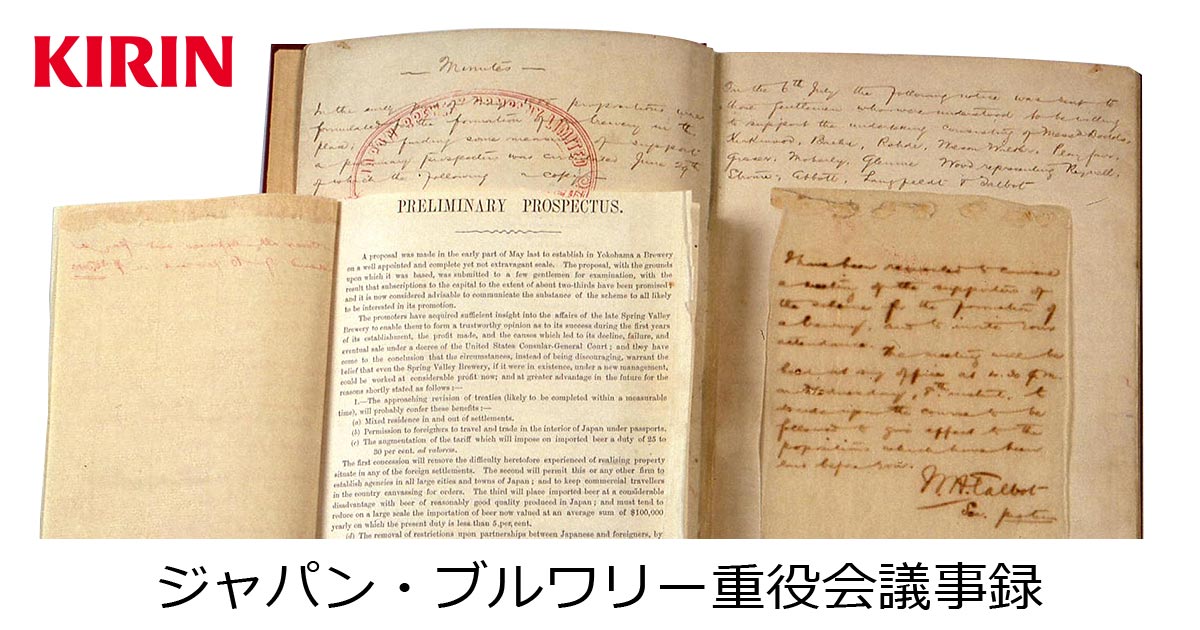 KIRIN
— Minutes —
In the early part of propositions was
formulated for the formation of a brewery in
place, finding some measure of support
a preliminary prospectus was circulated June 29th
of which the following a copy
LIMITED
On the 6th July the following notice was sent to
those gentlemen who were understood to be willing
to support the undertaking consisting of Messrs Dodds,
Kirkwood, Rohde, Mason Wilkin,
Moberly, Wood representing
Abbott, Langfeldt & Talbot
PRELIMINARY PROSPECTUS.
A proposal was made in the early part of May last to establish in Yokohama a Brewery
on a well appointed and complete yet not extravagant scale. The proposal, with the grounds
upon which it was based, was submitted to a few gentlemen for examination, with the
result that subscriptions to the capital to the extent of about two-thirds have been promised;
and it is now considered advisable to communicate the substance of the scheme to all likely
to be interested in its promotion.
The promoters have acquired sufficient insight into the affairs of the late Spring Valley
Brewery to enable them to form a trustworthy opinion as to its success during the first years
of its establishment, the profit made, and the causes which led to its decline, failure, and
eventual sale under a decree of the United States Consular-General Court; and they have
come to the conclusion that the circumstances, instead of being discouraging, warrant the
belief that even the Spring Valley Brewery, if it were in existence, under a new management,
could be worked at considerable profit now; and at greater advantage in the future for the
reasons shortly stated as follows:—
1.—The approaching revision of treaties (likely to be completed within a measurable
time), will probably confer these benefits:—
(a) Mixed residence in and out of settlements.
(b) Permission to foreigners to travel and trade in the interior of Japan under passports.
(c) The augmentation of the tariff which will impose on imported beer a duty of 25 to
30 per cent. ad valorem.
The first concession will remove the difficulty heretofore experienced of realising property
situate in any of the foreign settlements. The second will permit this or any other firm to
establish agencies in all large cities and towns of Japan; and to keep commercial travellers
in the country canvassing for orders. The third will place imported beer at a considerable
disadvantage with beer of reasonably good quality produced in Japan; and must tend to
reduce on a large scale the importation of beer now valued at an average sum of $100,000
yearly on which the present duty is less than 5 per cent.
(d) The removal of restrictions upon partnerships between Japanese and foreigners, by
I have been requested to convene
a meeting of the supporters of
the scheme for the formation of
a brewery, and to invite your
attendance. The meeting will be
held at my office at 4.30 p.m.
on Wednesday, 8th instant, to
consider upon the course to be
followed to give effect to the
proposition which have been
laid before you.
W. H. Talbot
Sec. pro tem
ジャパン・ブルワリー重役会議事録